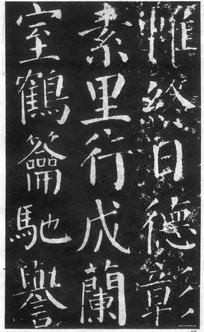 惟終日德彰
素里行成蘭
室鶴籥馳譽